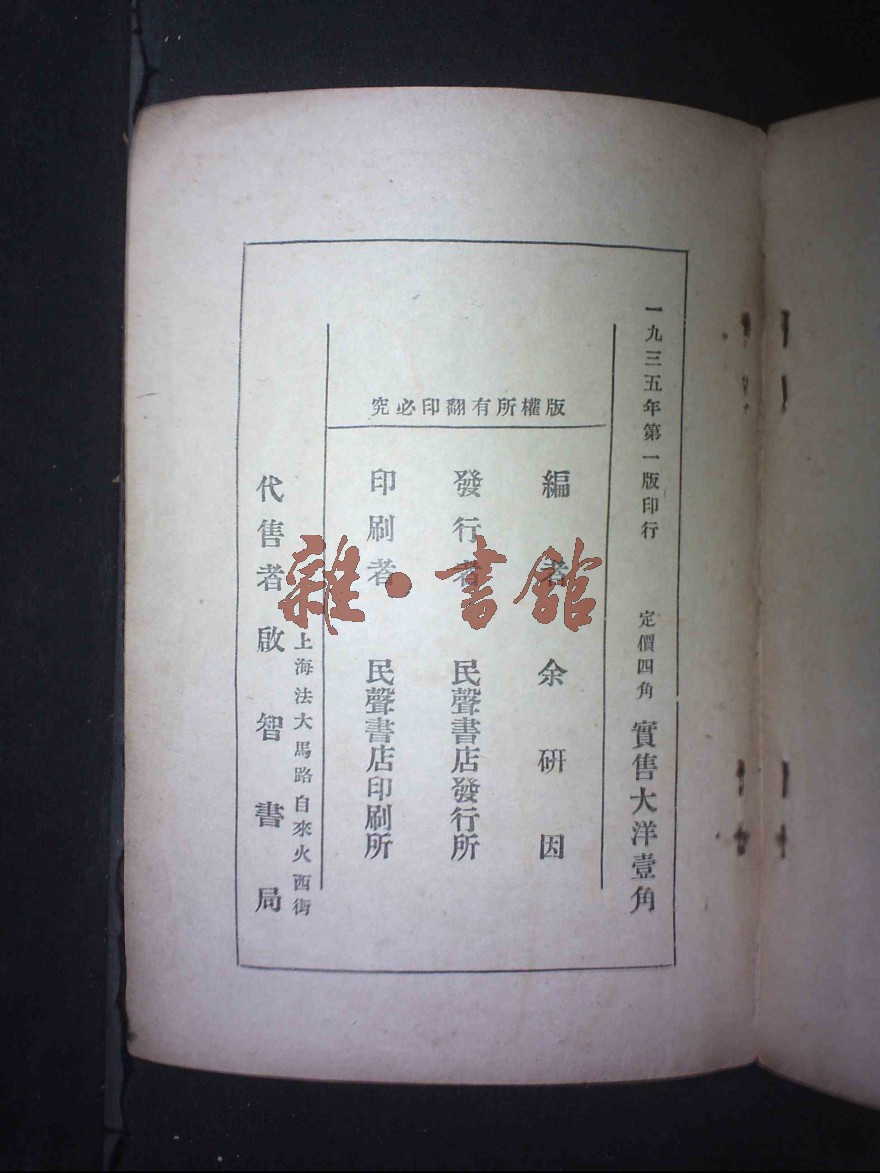 一九三五年第一版印行 定價四角 實售大洋壹角
版權所有翻印必究
編者 余研因
發行者 民聲書店發行所
印刷者 民聲書店印刷所
上海法大馬路自來火西街
代售者啟智書局
雜·書館